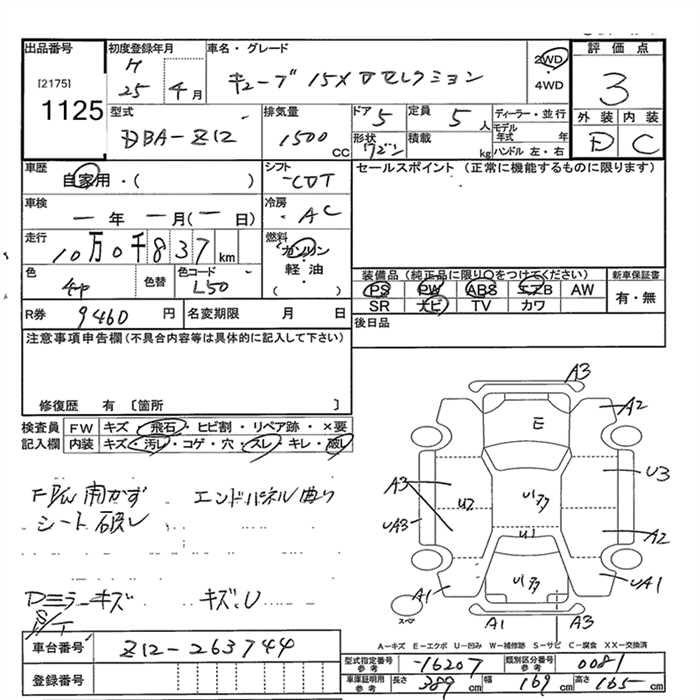 出品番号 初度登録年月 車名・グレード 評価点
[2175] H 2WD
1125 25 4月 キューブ 15X Vセレクション 4WD 3
型式 排気量 ドア 定員 ディーラー・並行 外装 内装
DBA-Z12 1500 CC 5 5人 モデル年式 年 D C
形状 ワゴン 積載 kg ハンドル 左・右
車歴 シフト セールスポイント (正常に機能するものに限ります)
自家用・( ) CVT
車検 冷房
一 年 一 月(一 日) AC
走行 燃料
10万0千837 km ガソリン
色 色替 色コード 軽・油
L50 ( )
装備品(純正品に限り○をつけてください) 新車保証書
PS PW ABS エアB AW 有・無
SR ナビ TV カワ
R券 9460 円 名変期限 月 日 後日品
注意事項申告欄(不具合内容等は具体的に記入して下さい)
修復歴 有 [箇所 ]
検査員 FW キズ・飛石・ヒビ割・リペア跡・×要
記入欄 内装 キズ・汚レ・コゲ・穴・スレ・キレ・破レ
開かず エンドパネル曲り
シート破レ
Dミラーキズ キズ、U
A3
E A2
A3 U3
U2
UA3 U1 A2
A1 UA1
スペア A1 A3
A-キズ E-エクボ U-凹み W-補修跡 S-サビ C-腐食 XX-交換済
車台番号 Z12-263744
型式指定番号 参考 -16207 類別区分番号 参考 0081
登録番号 車庫証明用 参考 長さ 389cm 幅 169cm 高さ 165cm